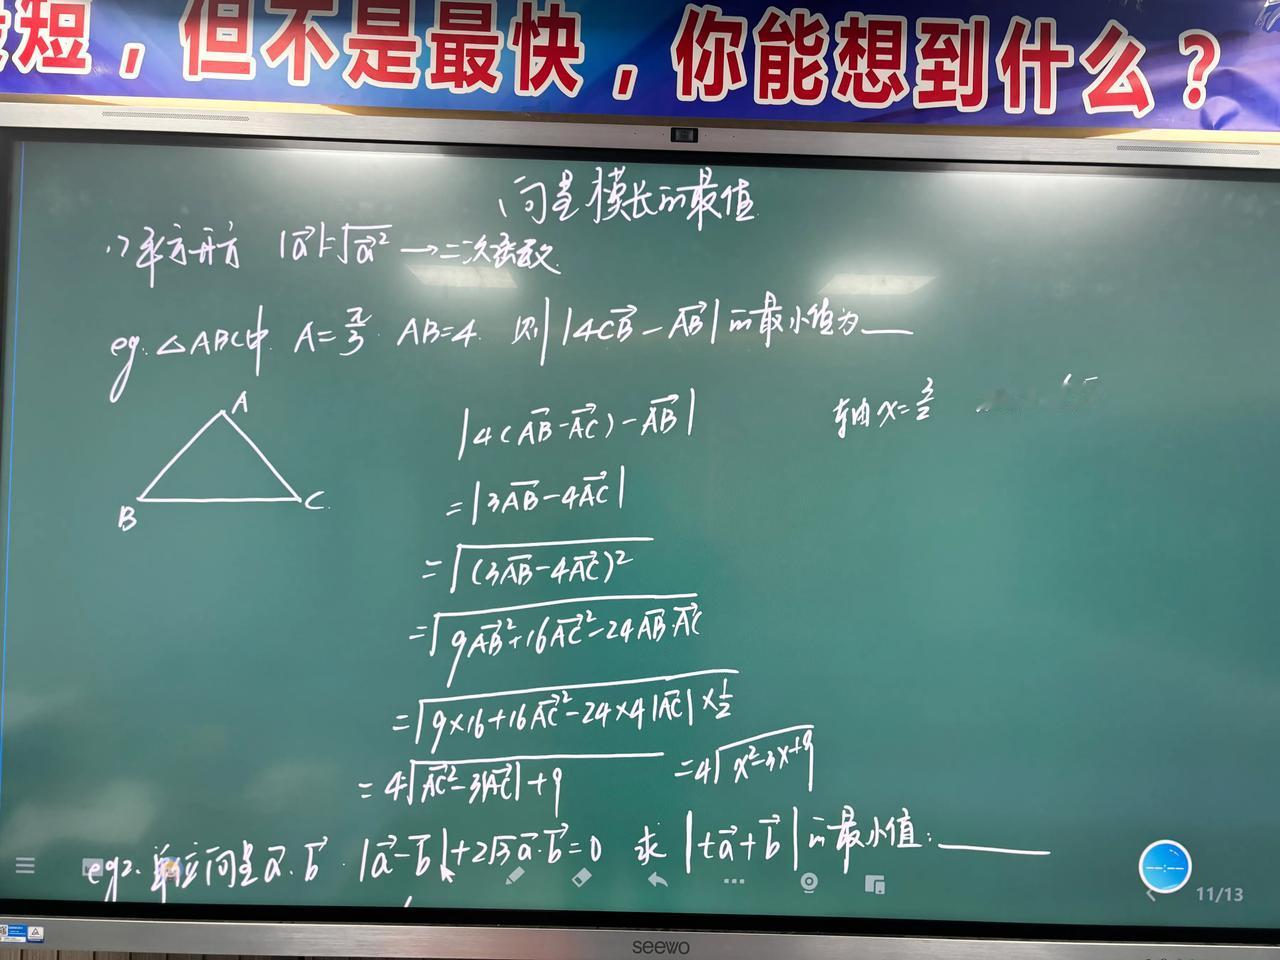 短，但不是最快，你能想到什么？
向量模长的最值
1) 平方开方 |a⃗|=√a⃗² → 二次函数
eg. △ABC中 A=π/3. AB=4. 则 |4CB⃗-AB⃗| 的最小值为___
A
B
C
|4(AB⃗-AC⃗)-AB⃗|
轴x=3/2
=|3AB⃗-4AC⃗|
=√(3AB⃗-4AC⃗)²
=√9AB⃗²+16AC⃗²-24AB⃗·AC⃗
=√9×16+16AC⃗²-24×4|AC⃗|×1/2
=4√AC⃗²-3|AC⃗|+9 =4√x²-3x+9
eg2. 单位向量a⃗.b⃗. |a⃗-b⃗|+2√3a⃗·b⃗=0 求 |ta⃗+b⃗| 的最小值:____
11/13
seewo